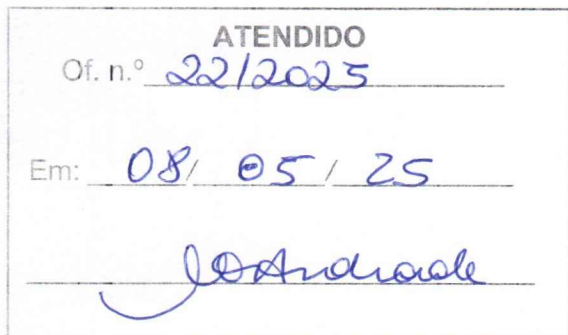 ATENDIDO
Of. n.º 22/2025
Em: 08/ 05 / 25
Andrade